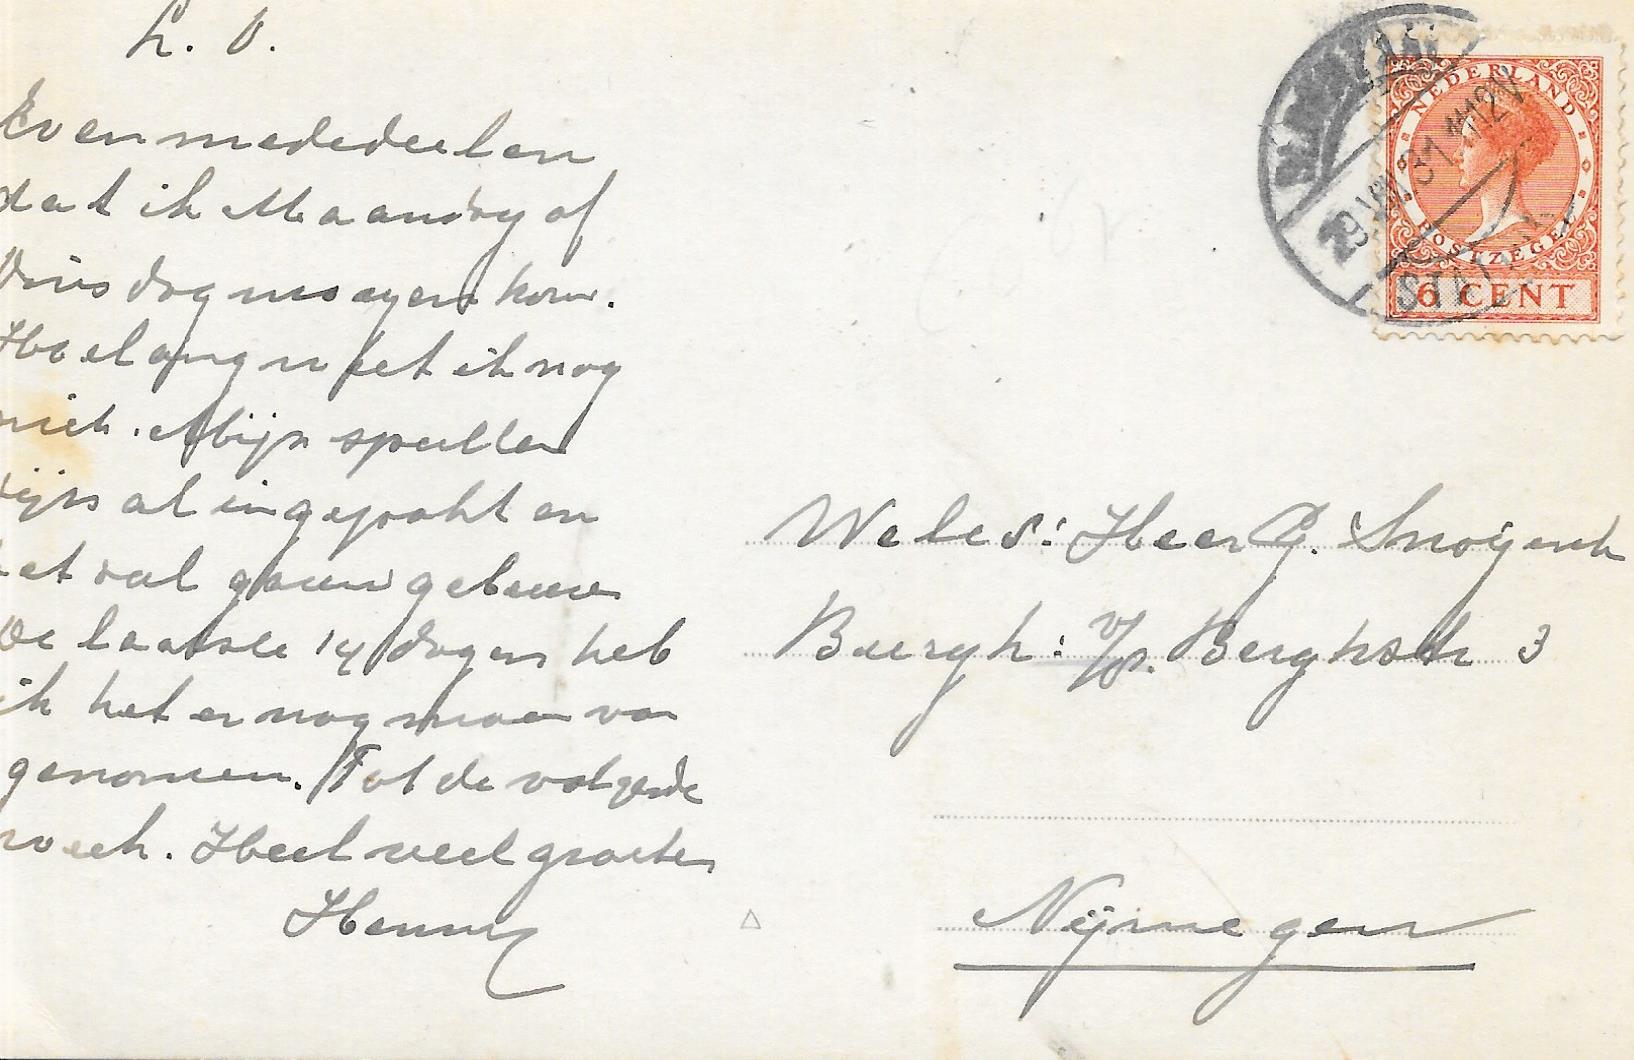 L. V.
Even mededeelen
dat ik Maandag of
Dinsdag morgen kom.
Hoelang weet ik nog
niet. Mijn spullen
zijn al ingepakt en
het zal gauw gebeuren
De laatste 14 dagen heb
ik het er nog maar van
genomen. Tot de volgende
week. Heel veel groeten
Henny
NEDERLAND
POSTZEGEL
6 CENT
29.VIII.31 11-12V
STAT
Weled: Heer G.
Buergh: v/d. Berghstr 3
Nijmegen